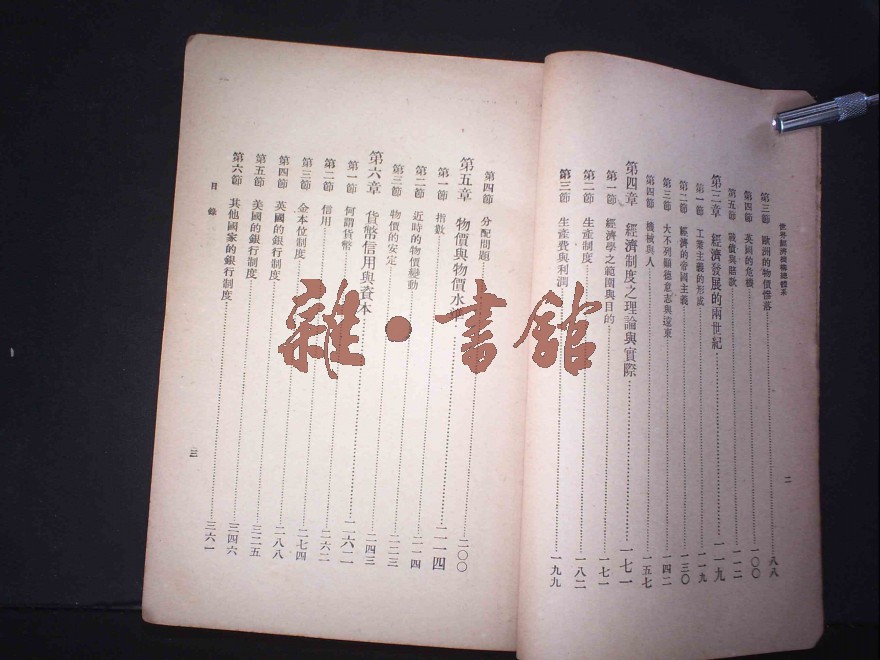 世界經濟機構總體系
第三節 歐洲的物價慘落……八八
第四節 英國的危機……一〇〇
第五節 戰債與賠款……一一二
第三章 經濟發展的兩世紀……一一九
第一節 工業主義的形成……一一九
第二節 經濟的帝國主義……一三〇
第三節 大不列顛德意志與遠東……一四二
第四節 機械與人……一五七
第四章 經濟制度之理論與實際……一七一
第一節 經濟學之範圍與目的……一七一
第二節 生產制度……一八二
第三節 生產費與利潤……一九九
二
第四節 分配問題……二〇〇
第五章 物價與物價水準……二一四
第一節 指數……二一四
第二節 近時的物價變動……二二三
第三節 物價的安定……二四三
第六章 貨幣信用與資本……二六二
第一節 何謂貨幣……二六二
第二節 信用……二七四
第三節 金本位制度……二八八
第四節 英國的銀行制度……三二五
第五節 美國的銀行制度……三四六
第六節 其他國家的銀行制度……三六一
目錄
三
雜●書館